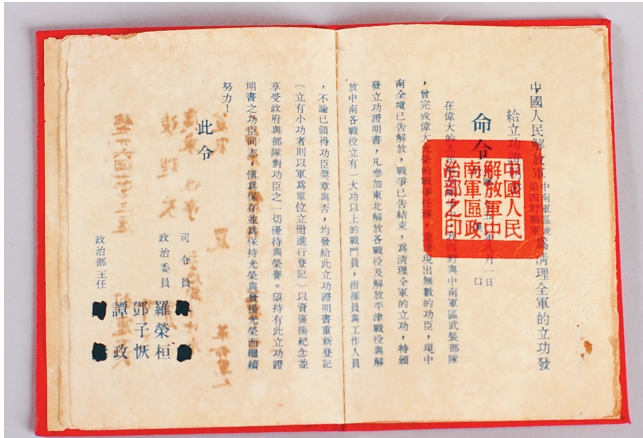 中國人民解放軍 中南軍區 第四野戰軍 為清理全軍的立功發
給立功證
命令
一日
中國人民
解放軍中
南軍區政
治部之印
在偉大的人 野戰 與中南軍區武裝部隊
，曾完成偉大光榮的戰爭任務， 現出無數的功臣，現中
南全境已告解放，戰爭已告結束，爲清理全軍的立功，特頒
發立功證明書，凡參加東北解放各戰役及解放平津戰役與解
放中南各戰役立有一大功以上的戰鬥員，指揮員與工作人員
，不論已領得功臣獎章與否，均發給此立功證明書重新登記
（立有小功者則以軍爲單位立冊進行登記）以資發揚紀念並
享受政府與部隊對功臣之一切優待與榮譽。望持有此立功證
明書之功臣同志，慎爲保存並爲保持光榮與發揚光榮而繼續
努力！
此令
司令員
政治委員 羅榮桓
鄧子恢
政治部主任 譚政